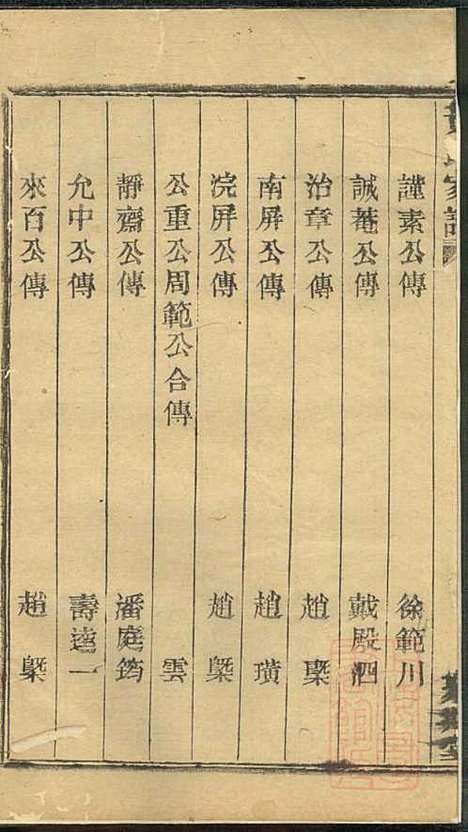 謹素公傳 徐範川
誠菴公傳 戴殿泗
治章公傳 趙㮚
南屏公傳 趙璜
浣屏公傳 趙㮚
公重公周範公合傳 雲
靜齋公傳 潘庭筠
允中公傳 壽逵一
來百公傳 趙㮚